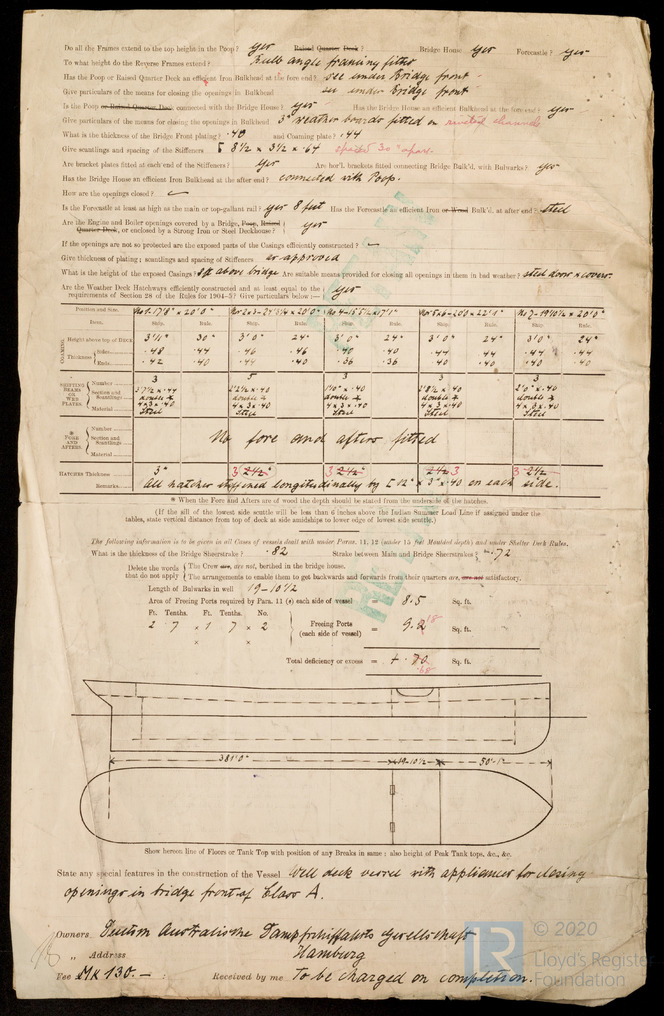 Do all the Frames extend to the top height in the Poop? yes Raised Quarter Deck? Bridge House yes Forecastle? yes
To what height do the Reverse Frames extend? bulb angle framing fitted
Has the Poop or Raised Quarter Deck an efficient Iron Bulkhead at the fore end? see under Bridge front
Give particulars of the means for closing the openings in Bulkhead see under Bridge front
Is the Poop or Raised Quarter Deck connected with the Bridge House? yes Has the Bridge House an efficient Bulkhead at the fore end? yes
Give particulars of the means for closing the openings in Bulkhead 3" weather boards fitted on riveted channels
What is the thickness of the Bridge Front plating? .40 and Coaming plate? .44
Give scantlings and spacing of the Stiffeners 8½ × 3½ × .64 spaced 30" apart.
Are bracket plates fitted at each end of the Stiffeners? yes Are hor'l. brackets fitted connecting Bridge Bulk'd. with Bulwarks? yes
Has the Bridge House an efficient Iron Bulkhead at the after end? connected with Poop.
How are the openings closed? —
Is the Forecastle at least as high as the main or top-gallant rail? yes 8 feet Has the Forecastle an efficient Iron or Wood Bulk'd. at after end? steel
Are the Engine and Boiler openings covered by a Bridge, Poop, Raised Quarter Deck, or enclosed by a Strong Iron or Steel Deckhouse? yes
If the openings are not so protected are the exposed parts of the Casings efficiently constructed? —
Give thickness of plating; scantlings and spacing of Stiffeners as approved
What is the height of the exposed Casings? 8ft above bridge Are suitable means provided for closing all openings in them in bad weather? steel doors & covers.
Are the Weather Deck Hatchways efficiently constructed and at least equal to the requirements of Section 28 of the Rules for 1904-5? Give particulars below:— yes
Position and Size.
Item. Ship. Rule. Ship. Rule. Ship. Rule. Ship. Rule. Ship. Rule.
COAMING Height above top of Deck 3'11" 30" 3'0" 24" 3'0" 24" 3'0" 24" 3'0" 24"
Thickness Sides .48 .44 .46 .46 .40 .40 .44 .44 .44 .44
Ends .42 .40 .44 .40 .36 .36 .40 .40 .40 .40
SHIFTING BEAMS OR WEB PLATES. Number 3 5 3 3 3
Section and Scantlings double double double double
4×3×.40 4×3×.40 4×3×.40 4×3×.40 4×3×.40
Material Steel Steel Steel Steel Steel
* FORE AND AFTERS. Number
Section and Scantlings No fore and afters fitted
Material
HATCHES Thickness 3" 3 2½" 3 2½" 2½ 3 3 2½
Remarks. All hatches stiffened longitudinally by [ 12" × 3" × .40 on each side.
* When the Fore and Afters are of wood the depth should be stated from the underside of the hatches.
(If the sill of the lowest side scuttle will be less than 6 inches above the Indian Summer Load Line if assigned under the
tables, state vertical distance from top of deck at side amidships to lower edge of lowest side scuttle.)
The following information is to be given in all Cases of vessels dealt with under Paras. 11, 12 (under 15 feet Moulded depth) and under Shelter Deck Rules.
What is the thickness of the Bridge Sheerstrake? .82 Strake between Main and Bridge Sheerstrakes? .72
Delete the words that do not apply
The Crew are, are not, berthed in the bridge house.
The arrangements to enable them to get backwards and forwards from their quarters are, are not satisfactory.
Length of Bulwarks in well 19-10½
Area of Freeing Ports required by Para. 11 (e) each side of vessel = 8.5 Sq. ft.
Ft. Tenths. Ft. Tenths. No.
2 7 × 1 7 × 2 Freeing Ports (each side of vessel) = 9.2 18 Sq. ft.
× ×
Total deficiency or excess = + .70 .68 Sq. ft.
381'0" 19-10½ 50'-1"
Show hereon line of Floors or Tank Top with position of any Breaks in same: also height of Peak Tank tops, &c., &c.
State any special features in the construction of the Vessel Well deck vessel with appliances for closing
openings in bridge front of Class A.
Owners Deutsch Australische Dampfschiffahrts Gesellschaft
" Address Hamburg
Fee Mk 130.— : Received by me To be charged on completion.
© 2020
Lloyd's Register
Foundation